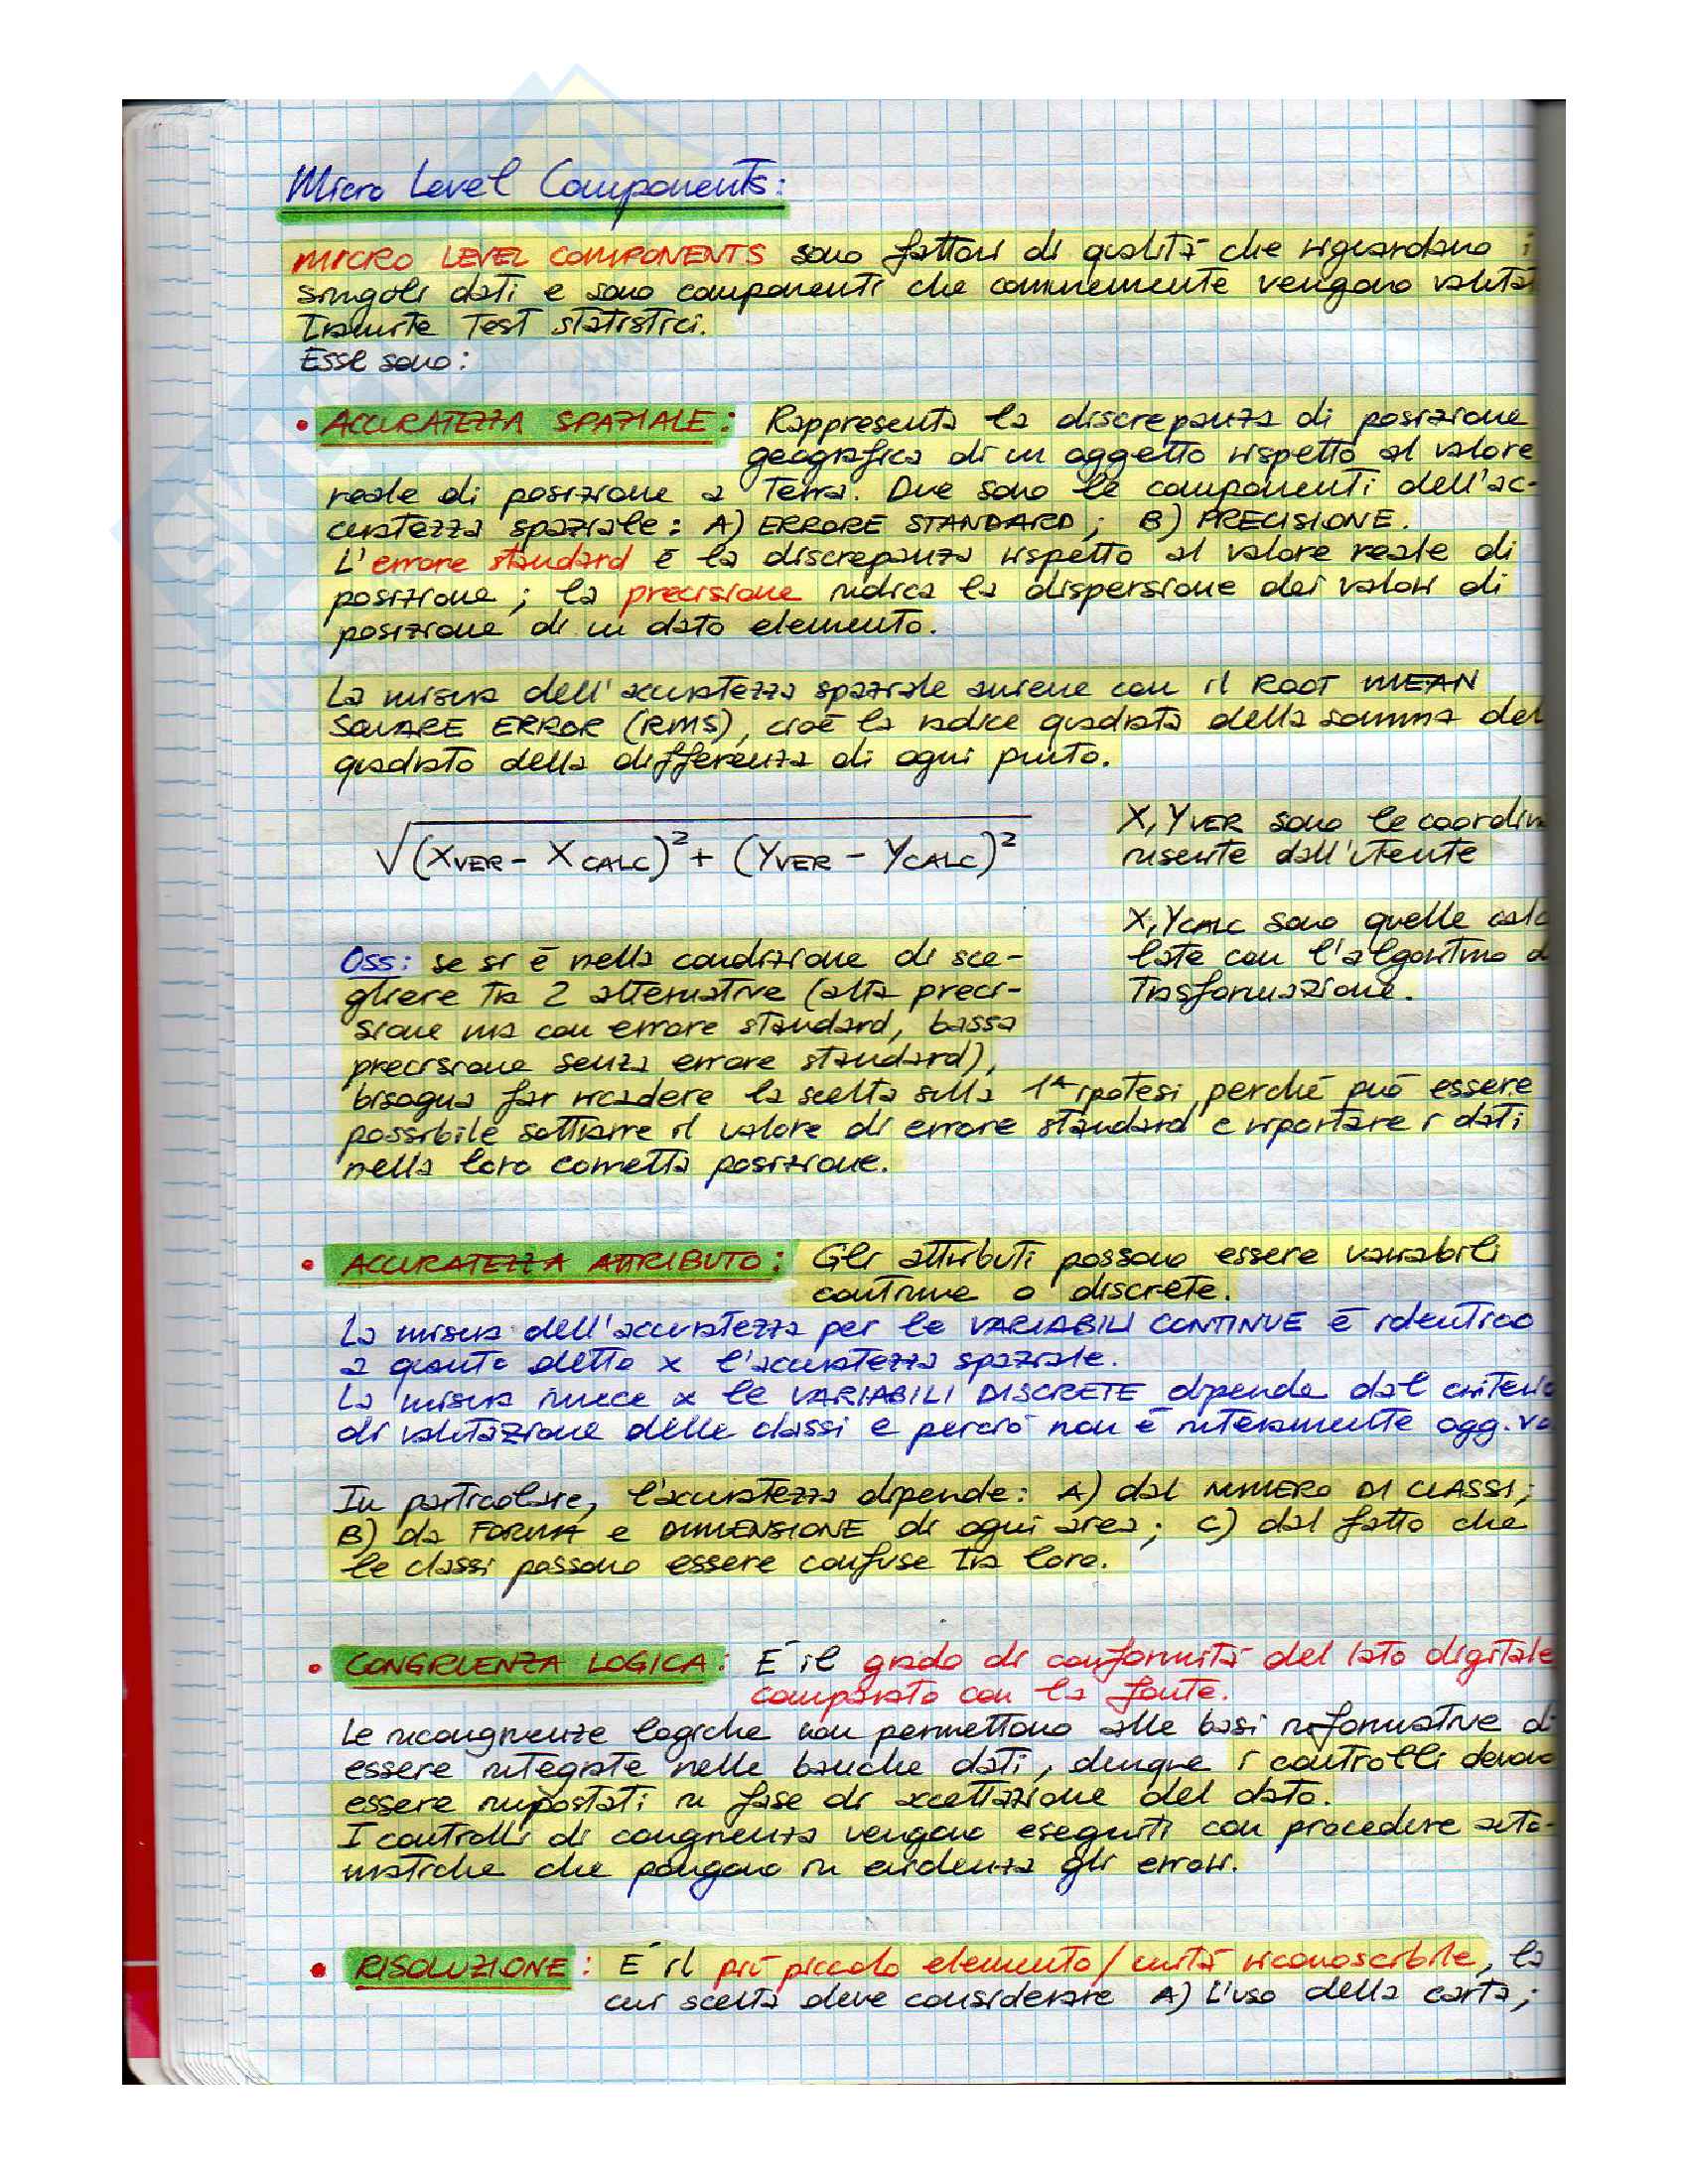 Micro Level Components:
MICRO LEVEL COMPONENTS sono fattori di qualità che riguardano i
singoli dati e sono componenti che comunemente vengono valutat
tramite test statistici.
Esse sono:
• ACCURATEZZA SPAZIALE: Rappresenta la discrepanza di posizione
geografica di un oggetto rispetto al valore
reale di posizione a Terra. Due sono le componenti dell'ac-
curatezza spaziale: A) ERRORE STANDARD; B) PRECISIONE.
L'errore standard è la discrepanza rispetto al valore reale di
posizione; la precisione indica la dispersione dei valori di
posizione di un dato elemento.
La misura dell'accuratezza spaziale avviene con il ROOT MEAN
SQUARE ERROR (RMS), cioè la radice quadrata della somma del
quadrato della differenza di ogni punto.
√(XVER - XCALC)² + (YVER - YCALC)²
X, YVER sono le coordin
inserite dall'utente
X, YCALC sono quelle calc
late con l'algoritmo d
trasformazione.
Oss: se si è nella condizione di sce-
gliere tra 2 alternative (alta preci-
sione ma con errore standard, bassa
precisione senza errore standard),
bisogna far ricadere la scelta sulla 1ª ipotesi, perché può essere
possibile sottrarre il valore di errore standard e riportare i dati
nella loro corretta posizione.
• ACCURATEZZA ATTRIBUTO: Gli attributi possono essere variabili
continue o discrete.
La misura dell'accuratezza per le VARIABILI CONTINUE è identico
a quanto detto x l'accuratezza spaziale.
La misura invece x le VARIABILI DISCRETE dipende dal criterio
di valutazione delle classi e perciò non è interamente ogg.vo
In particolare, l'accuratezza dipende: A) dal NUMERO DI CLASSI;
B) da FORMA e DIMENSIONE di ogni area; C) dal fatto che
le classi possono essere confuse tra loro.
• CONGRUENZA LOGICA: È il grado di conformità del lato digitale
comparato con la fonte.
Le incongruenze logiche non permettono alle basi informative di
essere integrate nelle banche dati, dunque i controlli devono
essere impostati in fase di accettazione del dato.
I controlli di congruenza vengono eseguiti con procedure auto-
matiche che pongono in evidenza gli errori.
• RISOLUZIONE: È il più piccolo elemento/unità riconoscibile, la
cui scelta deve considerare A) L'uso della carta;